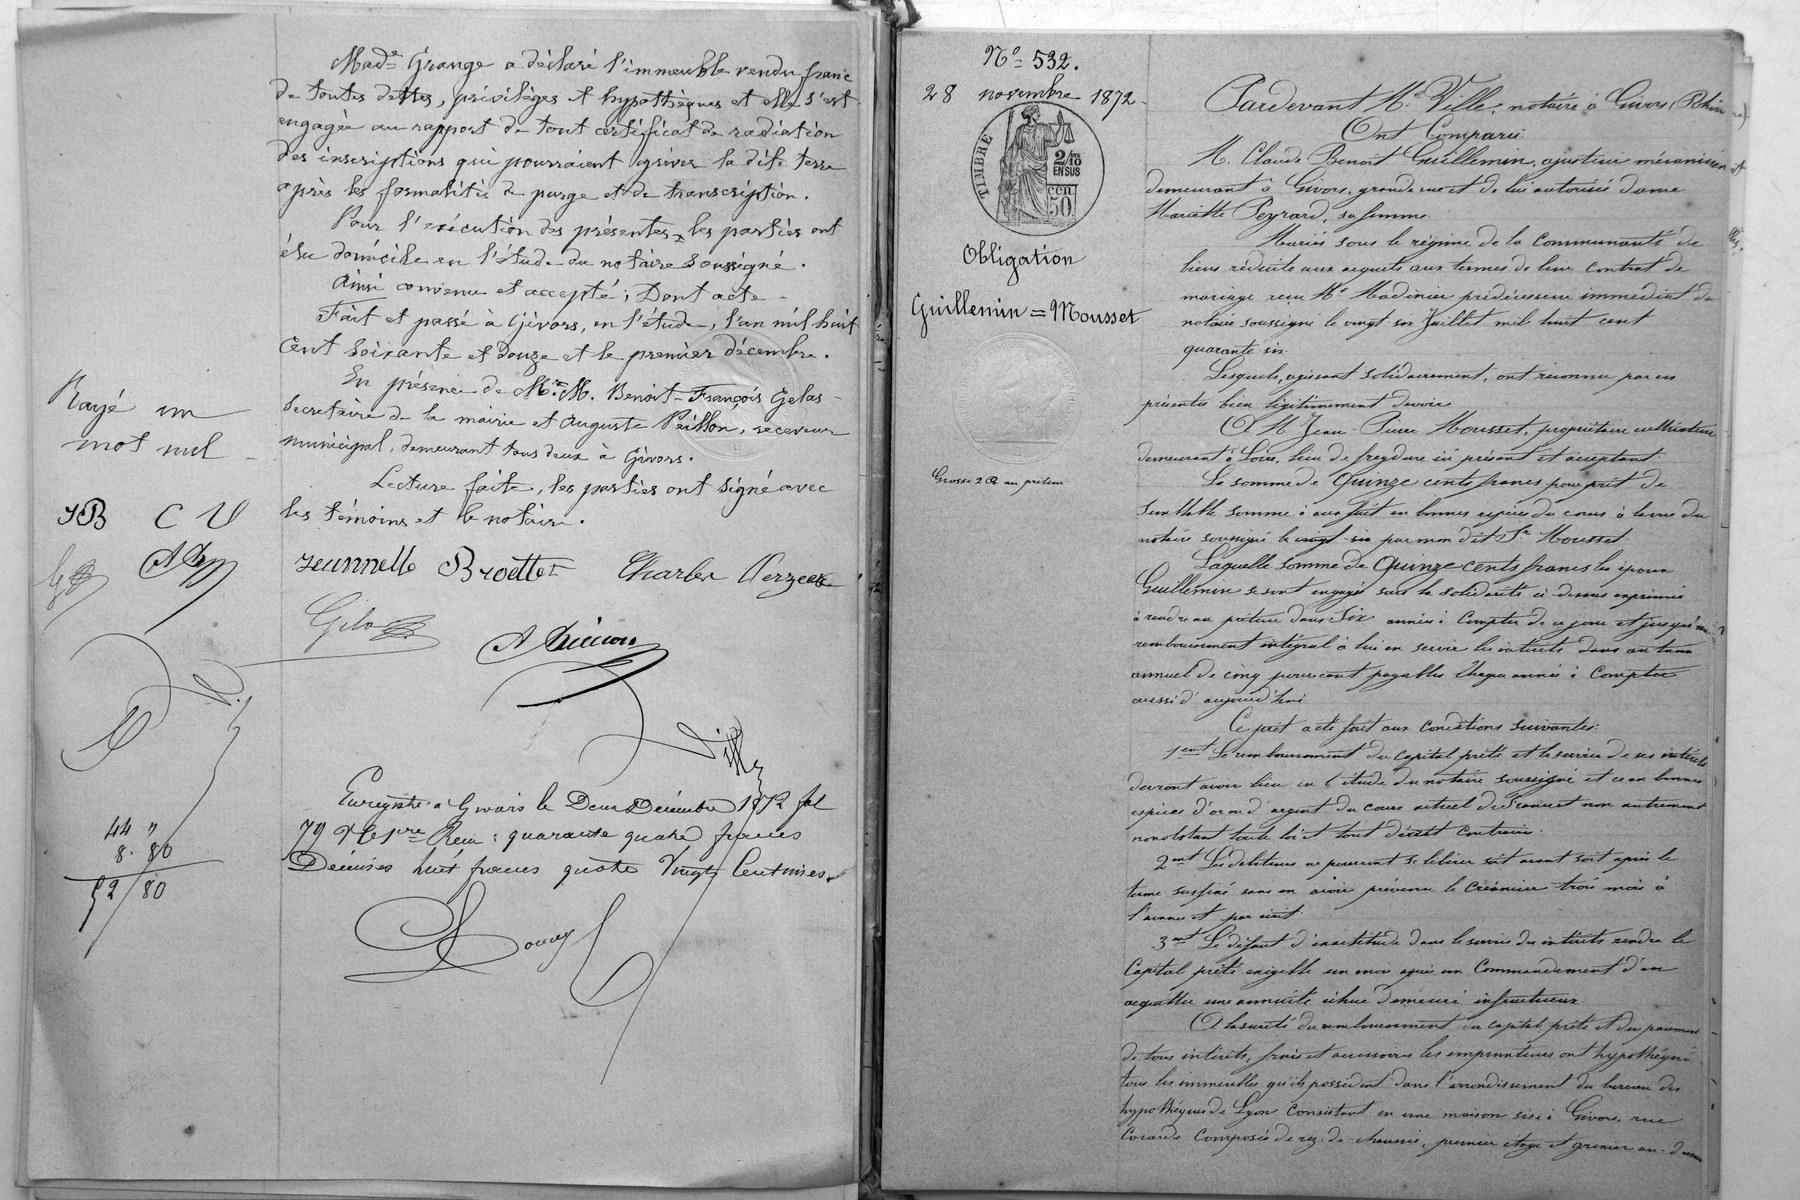 Made Grange a déclaré l'immeuble vendu franc
de toutes dettes, privilèges et hypothèques et elle s'est
engagée au rapport de tout certificat de radiation
des inscriptions qui pourraient grever la dite terre
après les formalités de purge et de transcription.
Pour l'exécution des présentes, les parties ont
élu domicile en l'étude du notaire soussigné.
Ainsi convenu et accepté ; Dont acte -
Fait et passé à Givors, en l'étude, l'an mil huit
cent soixante et douze et le premier décembre.
En présence de M.rs M. Benoit-François Gelas -
secrétaire de la mairie et Auguste Peillon, receveur
municipal, demeurant tous deux à Givors.
Lecture faite, les parties ont signé avec
les témoins et le notaire.
Rayé un
mot nul -
JB C V
Jeunnette Broette Charles
Gelas
Ville
Enregistré à Givors le Deux Décembre 1872 fol
79 Vo C 1ere Reçu : quarante quatre francs
Décimes huit francs quatre Vingts Centimes
44 "
8. 80
52 80
No 532.
28 novembre 1872.
TIMBRE
2/10
EN SUS
50 CEN
Obligation
Guillemin = Mousset
Grosse 2 R au prêteur
Pardevant Me Ville, notaire à Givors (Rhône)
Ont Comparu
M. Claude Benoit Guillemin, ajusteur mécanicien et
demeurant à Givors, grande rue et de lui autorisée dame
Mariette Peyrard, sa femme.
Mariés sous le régime de la Communauté de
biens réduite aux acquets aux termes de leur contrat de
mariage reçu Me Madinier prédécesseur immédiat du
notaire soussigné le vingt six Juillet mil huit cent
quarante six.
Lesquels, agissant solidairement, ont reconnu par ces
présentes bien légitimement devoir
A M. Jean-Pierre Mousset, propriétaire cultivateur
demeurant à Loire, lieu de freydure ici présent et acceptant
La somme de Quinze cents francs pour prêt de
semblable somme à eux fait en bonnes espèces du cours à la vue du
notaire soussigné le vingt six par mon dit Sr Mousset.
Laquelle somme de Quinze cents francs les époux
Guillemin se sont engagés sous la solidarité ci dessus exprimée
à rendre au prêteur dans Six années à Compter de ce jour et jusqu'au
remboursement intégral à lui en servir les intérêts dans au taux
annuel de cinq pour cent payables chaque année à Compter
aussi d'aujourd'hui
Ce prêt a été fait aux conditions suivantes :
1ent Le remboursement du capital prêté et le service de ses intérêts
devront avoir lieu en l'étude du notaire soussigné et ce en bonnes
espèces d'or ou d'argent du cours actuel de France et non autrement
nonobstant toute loi et tout décret contraires.
2ent Les débiteurs ne pourront se libérer soit avant soit après le
terme susfixé sans en avoir prévenu le Créancier trois mois à
l'avance et par écrit.
3ent Le défaut d'exactitude dans le service des intérêts rendra le
Capital prêté exigible un mois après un Commandement d'en
acquitter une annuité échue demeuré infructueux.
A la sureté du remboursement du capital prêté et du paiement
de tous intérêts, frais et accessoires les emprunteurs ont hypothéqué
tous les immeubles qu'ils possèdent dans l'arrondissement du bureau des
hypothèques de Lyon Consistant en une maison sise à Givors, rue
Composée de rez-de-chaussée, premier étage et grenier au-dessus